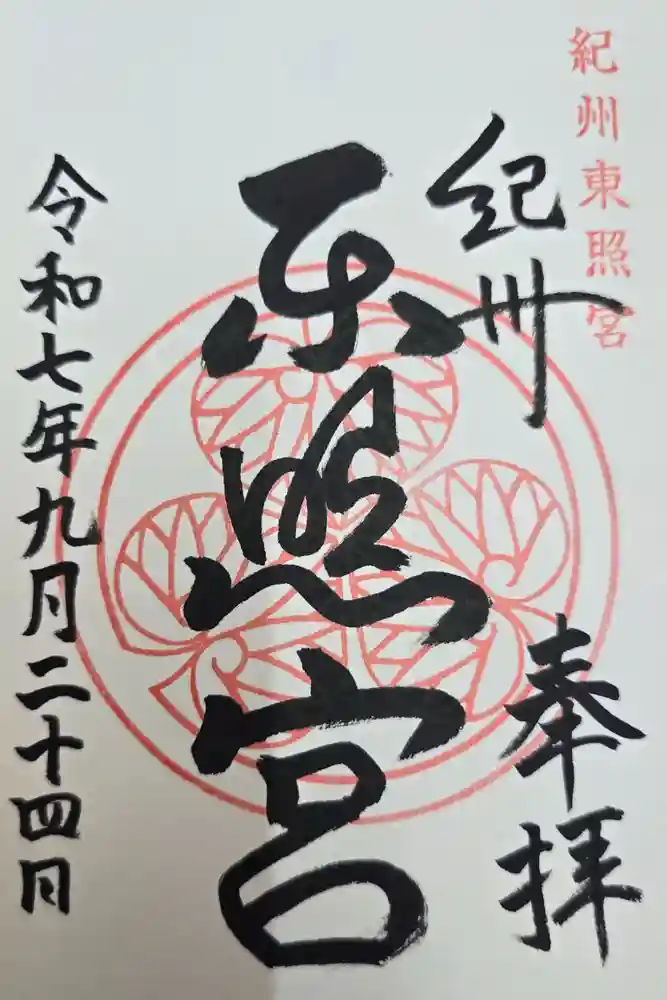 紀州東照宮
紀州
奉拝
東照宮
令和七年九月二十四日